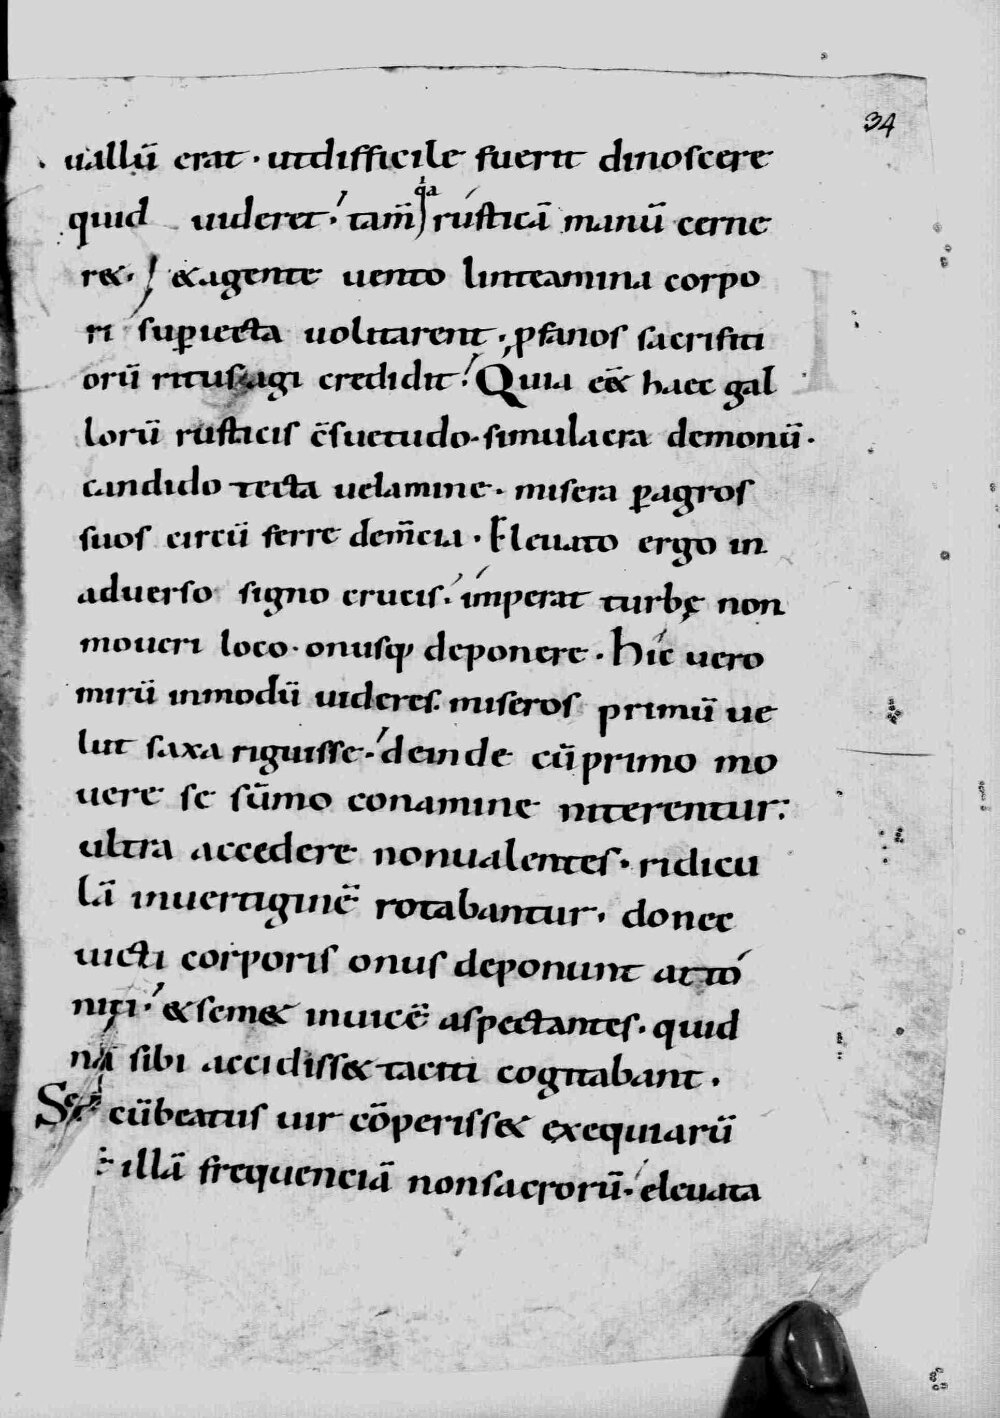 34
uallū erat · utdifficile fuerit dinoscere
quid uideret · tam̄ q̇a rusticā manū cerne
r& · &agente uento linteamina corpo
ri sup̱iecta uolitarent · p̱fanos sacrifiti
orū ritus agi credidit · Quia e&̄ haec gal
lorū rusticis c̄suetudo · simulacra demonū ·
candido tecta uelamine · misera p̱agros
suos circū ferre dem̄cia · Eleuato ergo in
aduerso signo crucis · imperat turbę non
moueri loco · onusq; deponere · Hic uero
mirū inmodū uideres · miseros primū ue
lut saxa riguisse · deinde cūprimo mo
uere se sūmo conamine niterentur ·
ultra accedere nonualentes · ridicu
lā inuertiginē rotabantur · donec
uicti corporis onus deponunt atto
niti · &sem& inuicē aspectantes · quid
nā sibi accidiss& taciti cogitabant ·
Sed cūbeatus uir cōperiss& exequiarū
illā frequenciā nonsacrorū · eleuata